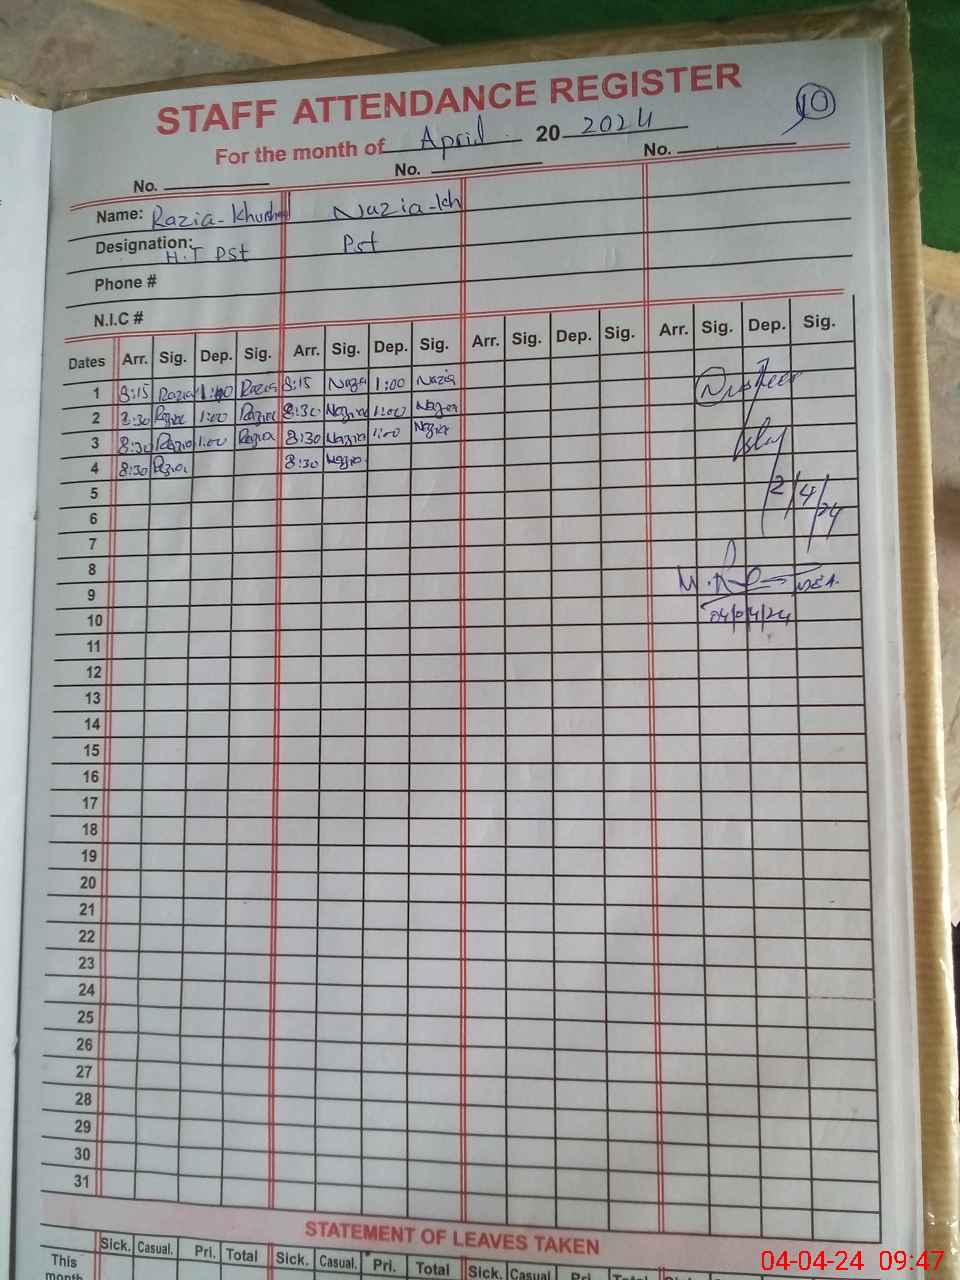 STAFF ATTENDANCE REGISTER
10
For the month of April 20 2024
No. No. No.
Name: Razia-Khurshid Nazia-kh
Designation: H.T PST Pst
Phone #
N.I.C #
Dates Arr. Sig. Dep. Sig. Arr. Sig. Dep. Sig. Arr. Sig. Dep. Sig. Arr. Sig. Dep. Sig.
1 8:15 Razia 1:00 Razia 8:15 Nazia 1:00 Nazia
2 8:30 Razia 1:00 Razia 8:30 Nazia 1:00 Nazia
3 8:30 Razia 1:00 Razia 8:30 Nazia 1:00 Nazia
4 8:30 Razia 8:30 Nazia
5
2/4/24
6
7
8
9
10 04/04/24
11
12
13
14
15
16
17
18
19
20
21
22
23
24
25
26
27
28
29
30
31
STATEMENT OF LEAVES TAKEN
Sick. Casual. Pri. Total Sick. Casual. Pri. Total Sick. Casual Pri. Total
This month
04-04-24 09:47